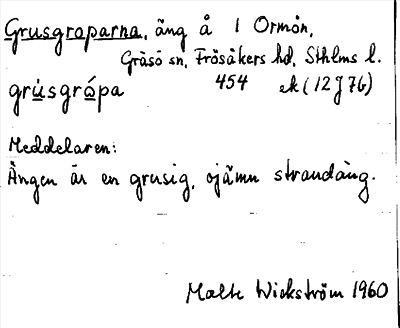 Grusgroparna, äng å 1 Ormön,
Gräsö sn, Frösåkers hd, Sthlms l.
grùsgrópa 454 ek (12J76)
Meddelaren:
Ängen är en grusig, ojämn strandäng.
Malte Wickström 1960